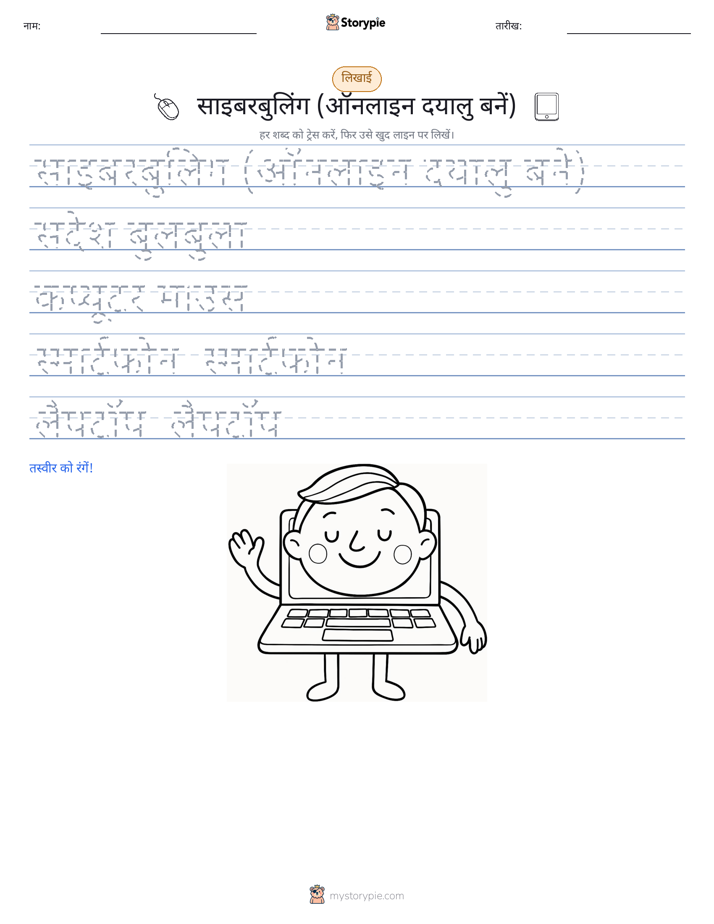 नाम:
Storypie
तारीख:
लिखाई
साइबरबुलिंग (ऑनलाइन दयालु बनें)
हर शब्द को ट्रेस करें, फिर उसे खुद लाइन पर लिखें।
साइबरबुलिंग (ऑनलाइन दयालु बनें)
संदेश बुलबुला
कंप्यूटर माउस
स्मार्टफ़ोन स्मार्टफ़ोन
लैपटॉप लैपटॉप
तस्वीर को रंगें!
mystorypie.com